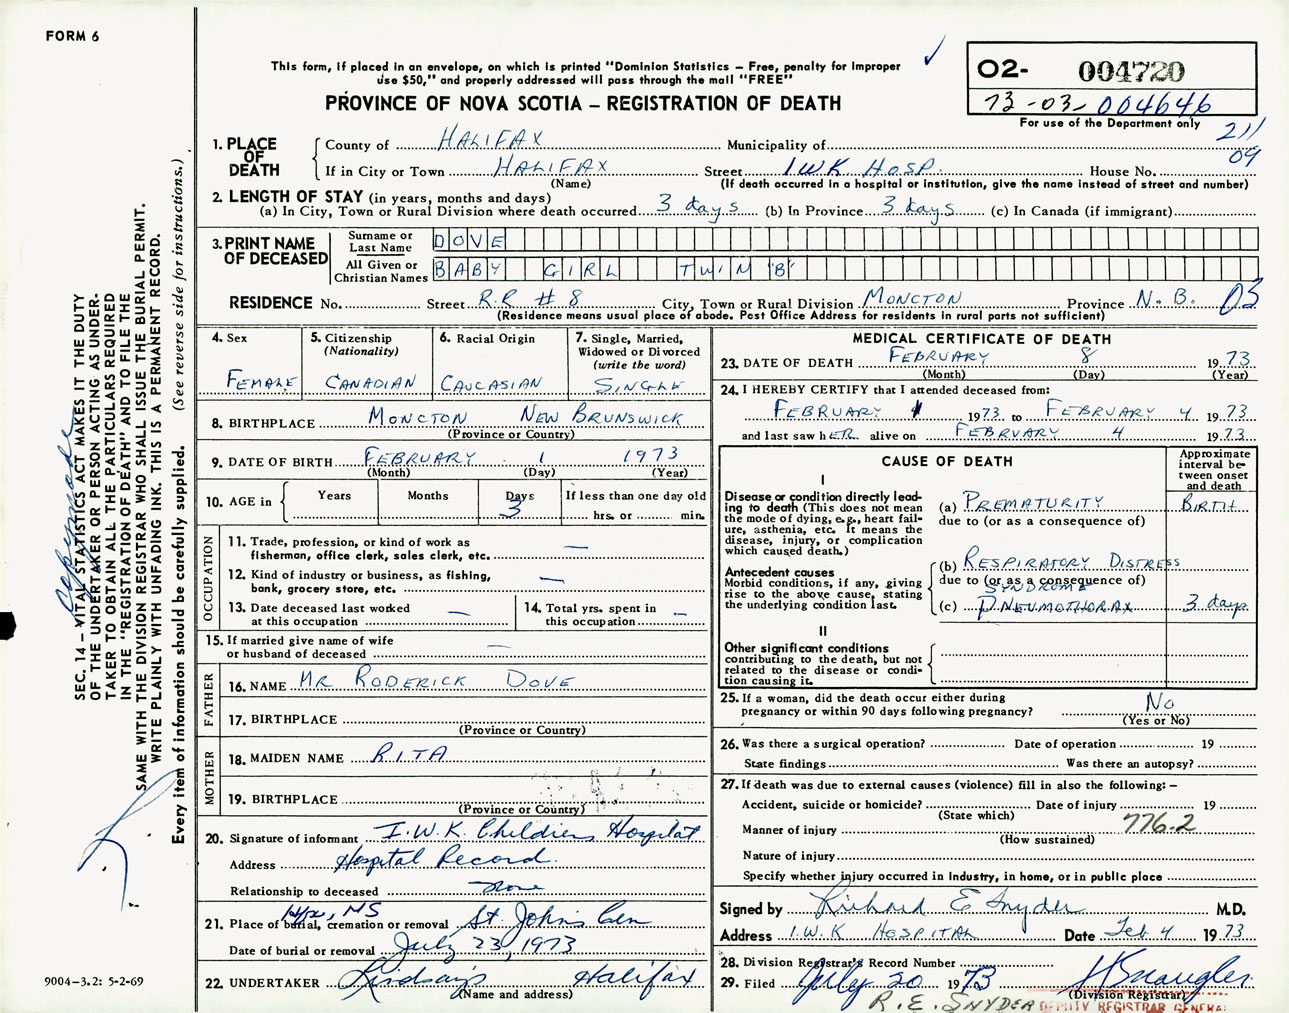 FORM 6
This form, if placed in an envelope, on which is printed "Dominion Statistics – Free, penalty for improper
use $50," and properly addressed will pass through the mail "FREE"
PROVINCE OF NOVA SCOTIA – REGISTRATION OF DEATH
02- 004720
73-03-004646
For use of the Department only
211
09
1. PLACE OF DEATH
County of HALIFAX Municipality of
If in City or Town HALIFAX Street IWK HOSP. House No.
(Name) (If death occurred in a hospital or institution, give the name instead of street and number)
2. LENGTH OF STAY (in years, months and days)
(a) In City, Town or Rural Division where death occurred 3 days (b) In Province 3 days (c) In Canada (if immigrant)
3. PRINT NAME OF DECEASED
Surname or Last Name DOVE
All Given or Christian Names BABY GIRL TWIN 'B'
RESIDENCE No. Street R.R # 8 City, Town or Rural Division MONCTON Province N.B. 03
(Residence means usual place of abode. Post Office Address for residents in rural parts not sufficient)
4. Sex
FEMALE
5. Citizenship
(Nationality)
CANADIAN
6. Racial Origin
CAUCASIAN
7. Single, Married,
Widowed or Divorced
(write the word)
SINGLE
8. BIRTHPLACE MONCTON NEW BRUNSWICK
(Province or Country)
9. DATE OF BIRTH FEBRUARY 1 1973
(Month) (Day) (Year)
10. AGE in Years Months Days If less than one day old
3 hrs. or min.
OCCUPATION
11. Trade, profession, or kind of work as
fisherman, office clerk, sales clerk, etc. —
12. Kind of industry or business, as fishing,
bank, grocery store, etc. —
13. Date deceased last worked
at this occupation —
14. Total yrs. spent in
this occupation —
15. If married give name of wife
or husband of deceased —
FATHER
16. NAME MR RODERICK DOVE
17. BIRTHPLACE
(Province or Country)
MOTHER
18. MAIDEN NAME RITA
19. BIRTHPLACE
(Province or Country)
20. Signature of informant I.W.K. Childrens Hospital
Address Hospital Record
Relationship to deceased none
Hfx, NS
21. Place of burial, cremation or removal St. John's Cem
Date of burial or removal July 23, 1973
22. UNDERTAKER Lindsay's Halifax
(Name and address)
MEDICAL CERTIFICATE OF DEATH
23. DATE OF DEATH FEBRUARY 8 1973
(Month) (Day) (Year)
24. I HEREBY CERTIFY that I attended deceased from:
FEBRUARY 1 1973 to FEBRUARY 4 1973
and last saw hER alive on FEBRUARY 4 1973
CAUSE OF DEATH
Approximate
interval be-
tween onset
and death
I
Disease or condition directly lead-
ing to death (This does not mean
the mode of dying, e.g., heart fail-
ure, asthenia, etc. It means the
disease, injury, or complication
which caused death.)
(a) PREMATURITY BIRTH
due to (or as a consequence of)
Antecedent causes
Morbid conditions, if any, giving
rise to the above cause, stating
the underlying condition last.
(b) RESPIRATORY DISTRESS
due to (or as a consequence of)
SYNDROME
(c) PNEUMOTHORAX 3 days
II
Other significant conditions
contributing to the death, but not
related to the disease or condi-
tion causing it.
25. If a woman, did the death occur either during
pregnancy or within 90 days following pregnancy? No
(Yes or No)
26. Was there a surgical operation? Date of operation 19
State findings Was there an autopsy?
27. If death was due to external causes (violence) fill in also the following: –
Accident, suicide or homicide? Date of injury 19
(State which)
Manner of injury 776.2
(How sustained)
Nature of injury
Specify whether injury occurred in industry, in home, or in public place
Signed by Richard E Snyder M.D.
Address I.W.K HOSPITAL Date Feb 4 1973
28. Division Registrar's Record Number
29. Filed July 20 1973
(Division Registrar)
R.E. SNYDER
DEPUTY REGISTRAR GENERAL
SEC. 14 – VITAL STATISTICS ACT MAKES IT THE DUTY
OF THE UNDERTAKER OR PERSON ACTING AS UNDER-
TAKER TO OBTAIN ALL THE PARTICULARS REQUIRED
IN THE "REGISTRATION OF DEATH" AND TO FILE THE
SAME WITH THE DIVISION REGISTRAR WHO SHALL ISSUE THE BURIAL PERMIT.
WRITE PLAINLY WITH UNFADING INK. THIS IS A PERMANENT RECORD.
Every item of information should be carefully supplied. (See reverse side for instructions.)
copy made
9004-3.2: 5-2-69